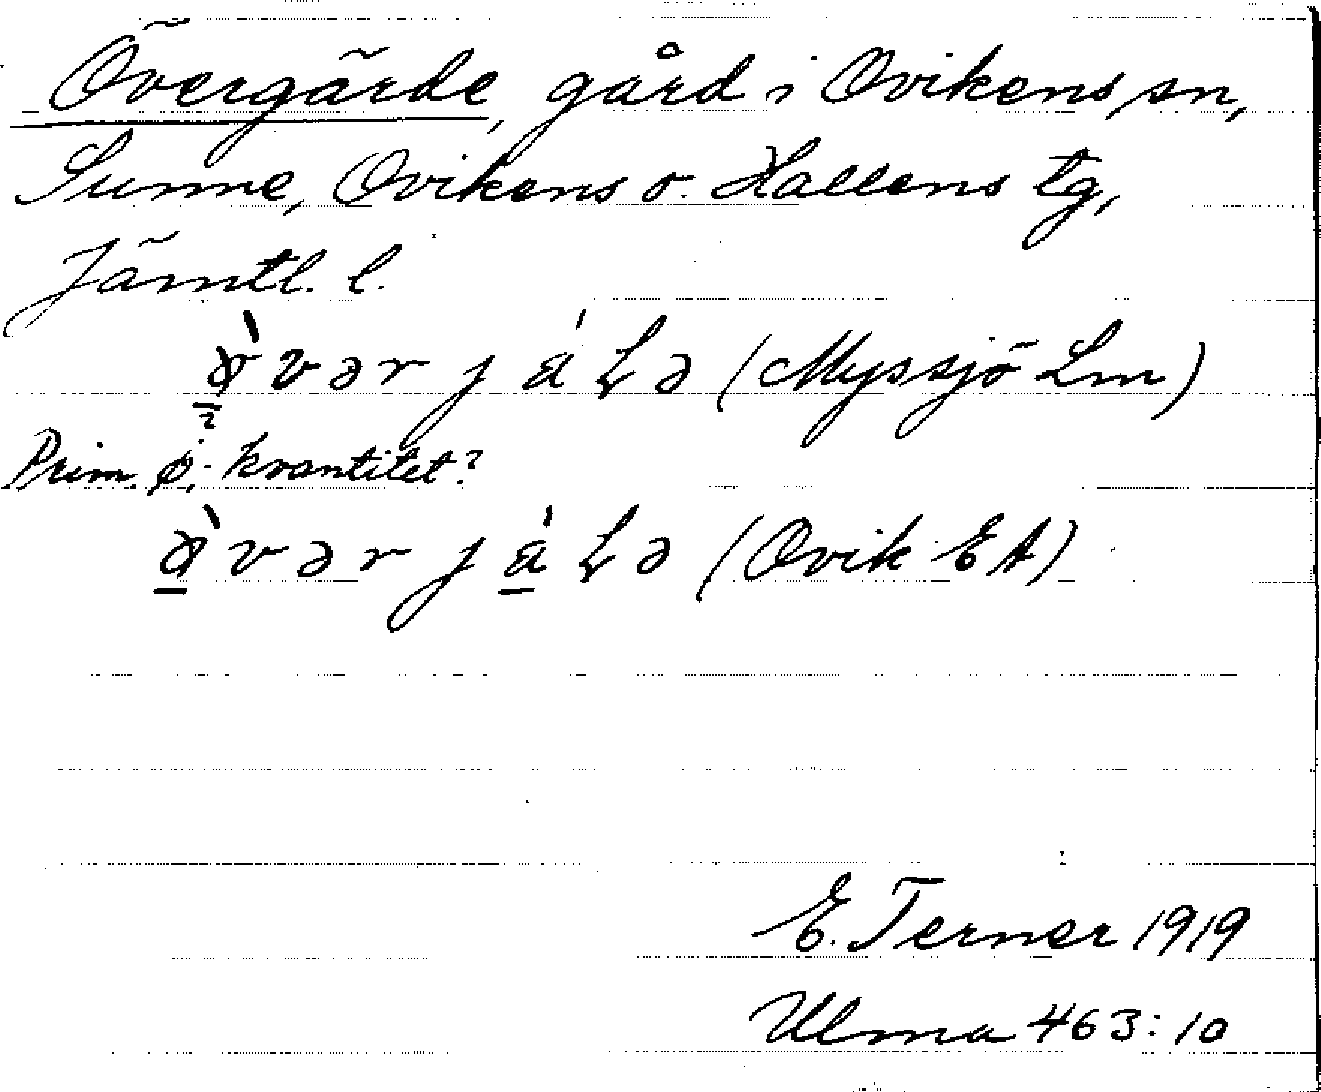 Övergärde, gård i Ovikens sn,
Sunne, Ovikens o. Hallens tg,
Jämtl. l.
(Myssjö Lm)
Prim. ø; kvantitet?
(Ovik EA)
E. Terner 1919
Ulma 463:10